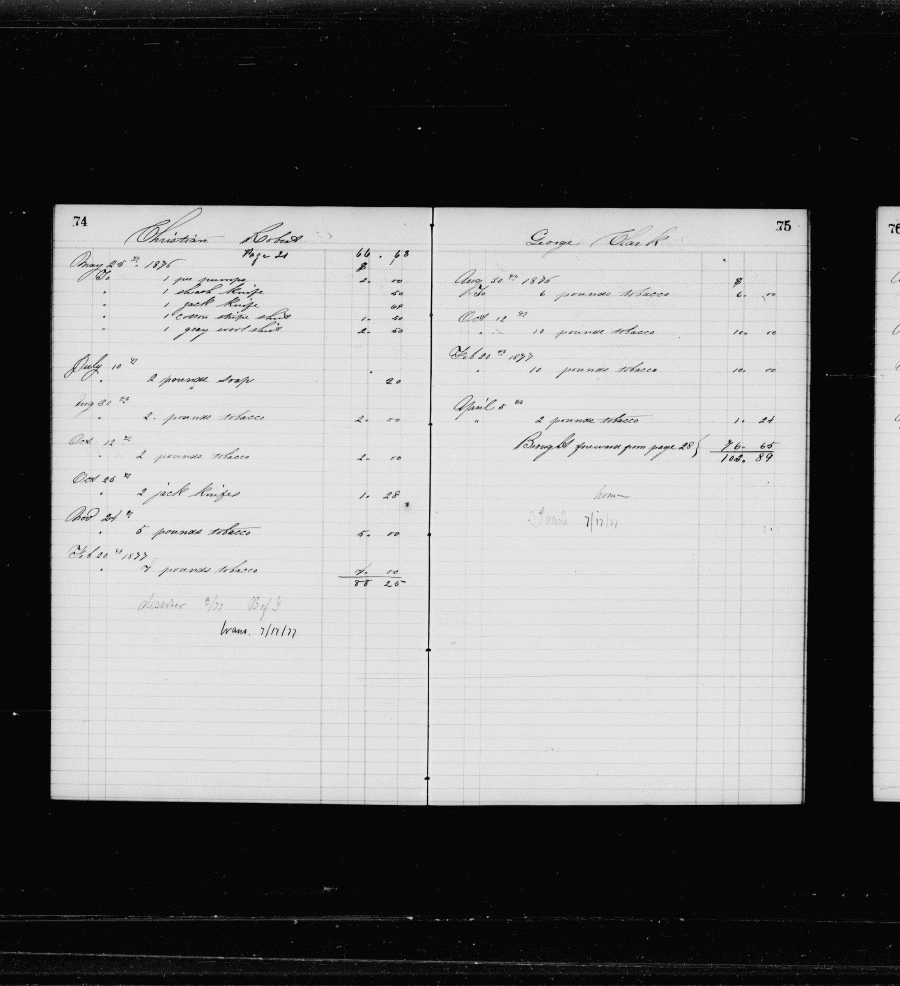 74
Christian Robert
Page 21 66. 68
May 25th. 1876 $
To 1 pr pumps 2. 00
" 1 sheath knife 50
" 1 jack knife 64
" 1 cotton stripe shirt 1. 20
" 1 gray wool shirt 2. 50
July 10th
" 2 pounds soap 20
Aug 30th
" 2. pounds tobacco 2. 00
Oct 12th
" 2 pounds tobacco 2. 00
Oct 25th
" 2 jack knifes 1. 28
Nov 24th
" 5 pounds tobacco 5. 00
Feb 20th 1877
" 4 pounds tobacco 4. 00
88 25
deserter 3/77 B of I
trans. 7/17/77
75
George Clark
Aug 30th 1876 $
To 6 pounds tobacco 6. 00
Oct 12th
" 10 pounds tobacco 10. 00
Feb 20th 1877
" 10 pounds tobacco 10. 00
April 5th
" 2 pounds tobacco 1. 24
Brought forward from page 28 } 76. 65
102. 89
home
Trans 7/17/77
76